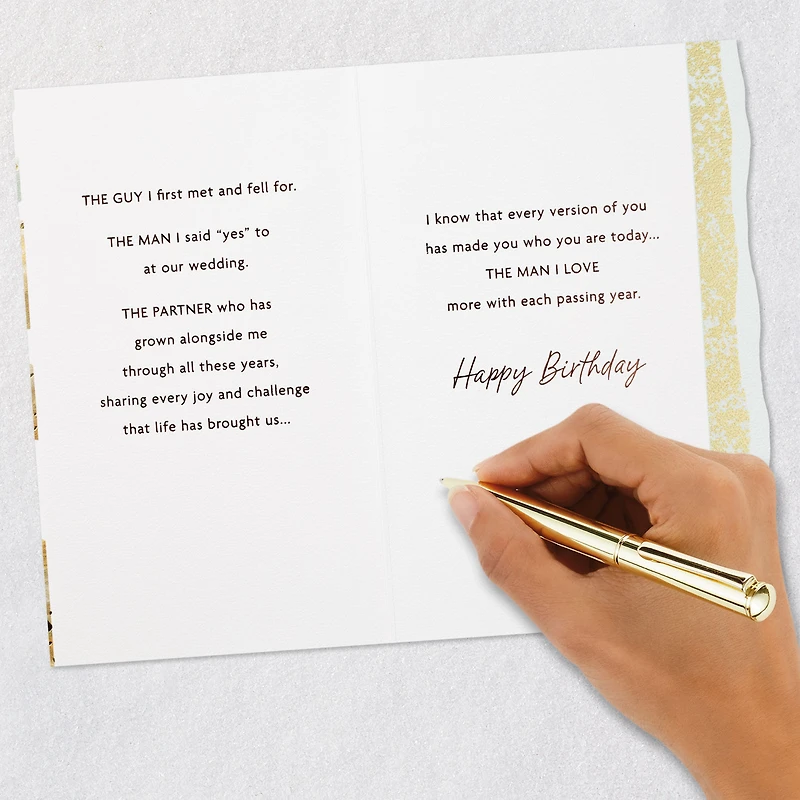 THE GUY I first met and fell for.
THE MAN I said “yes” to
at our wedding.
THE PARTNER who has
grown alongside me
through all these years,
sharing every joy and challenge
that life has brought us...
I know that every version of you
has made you who you are today...
THE MAN I LOVE
more with each passing year.
Happy Birthday